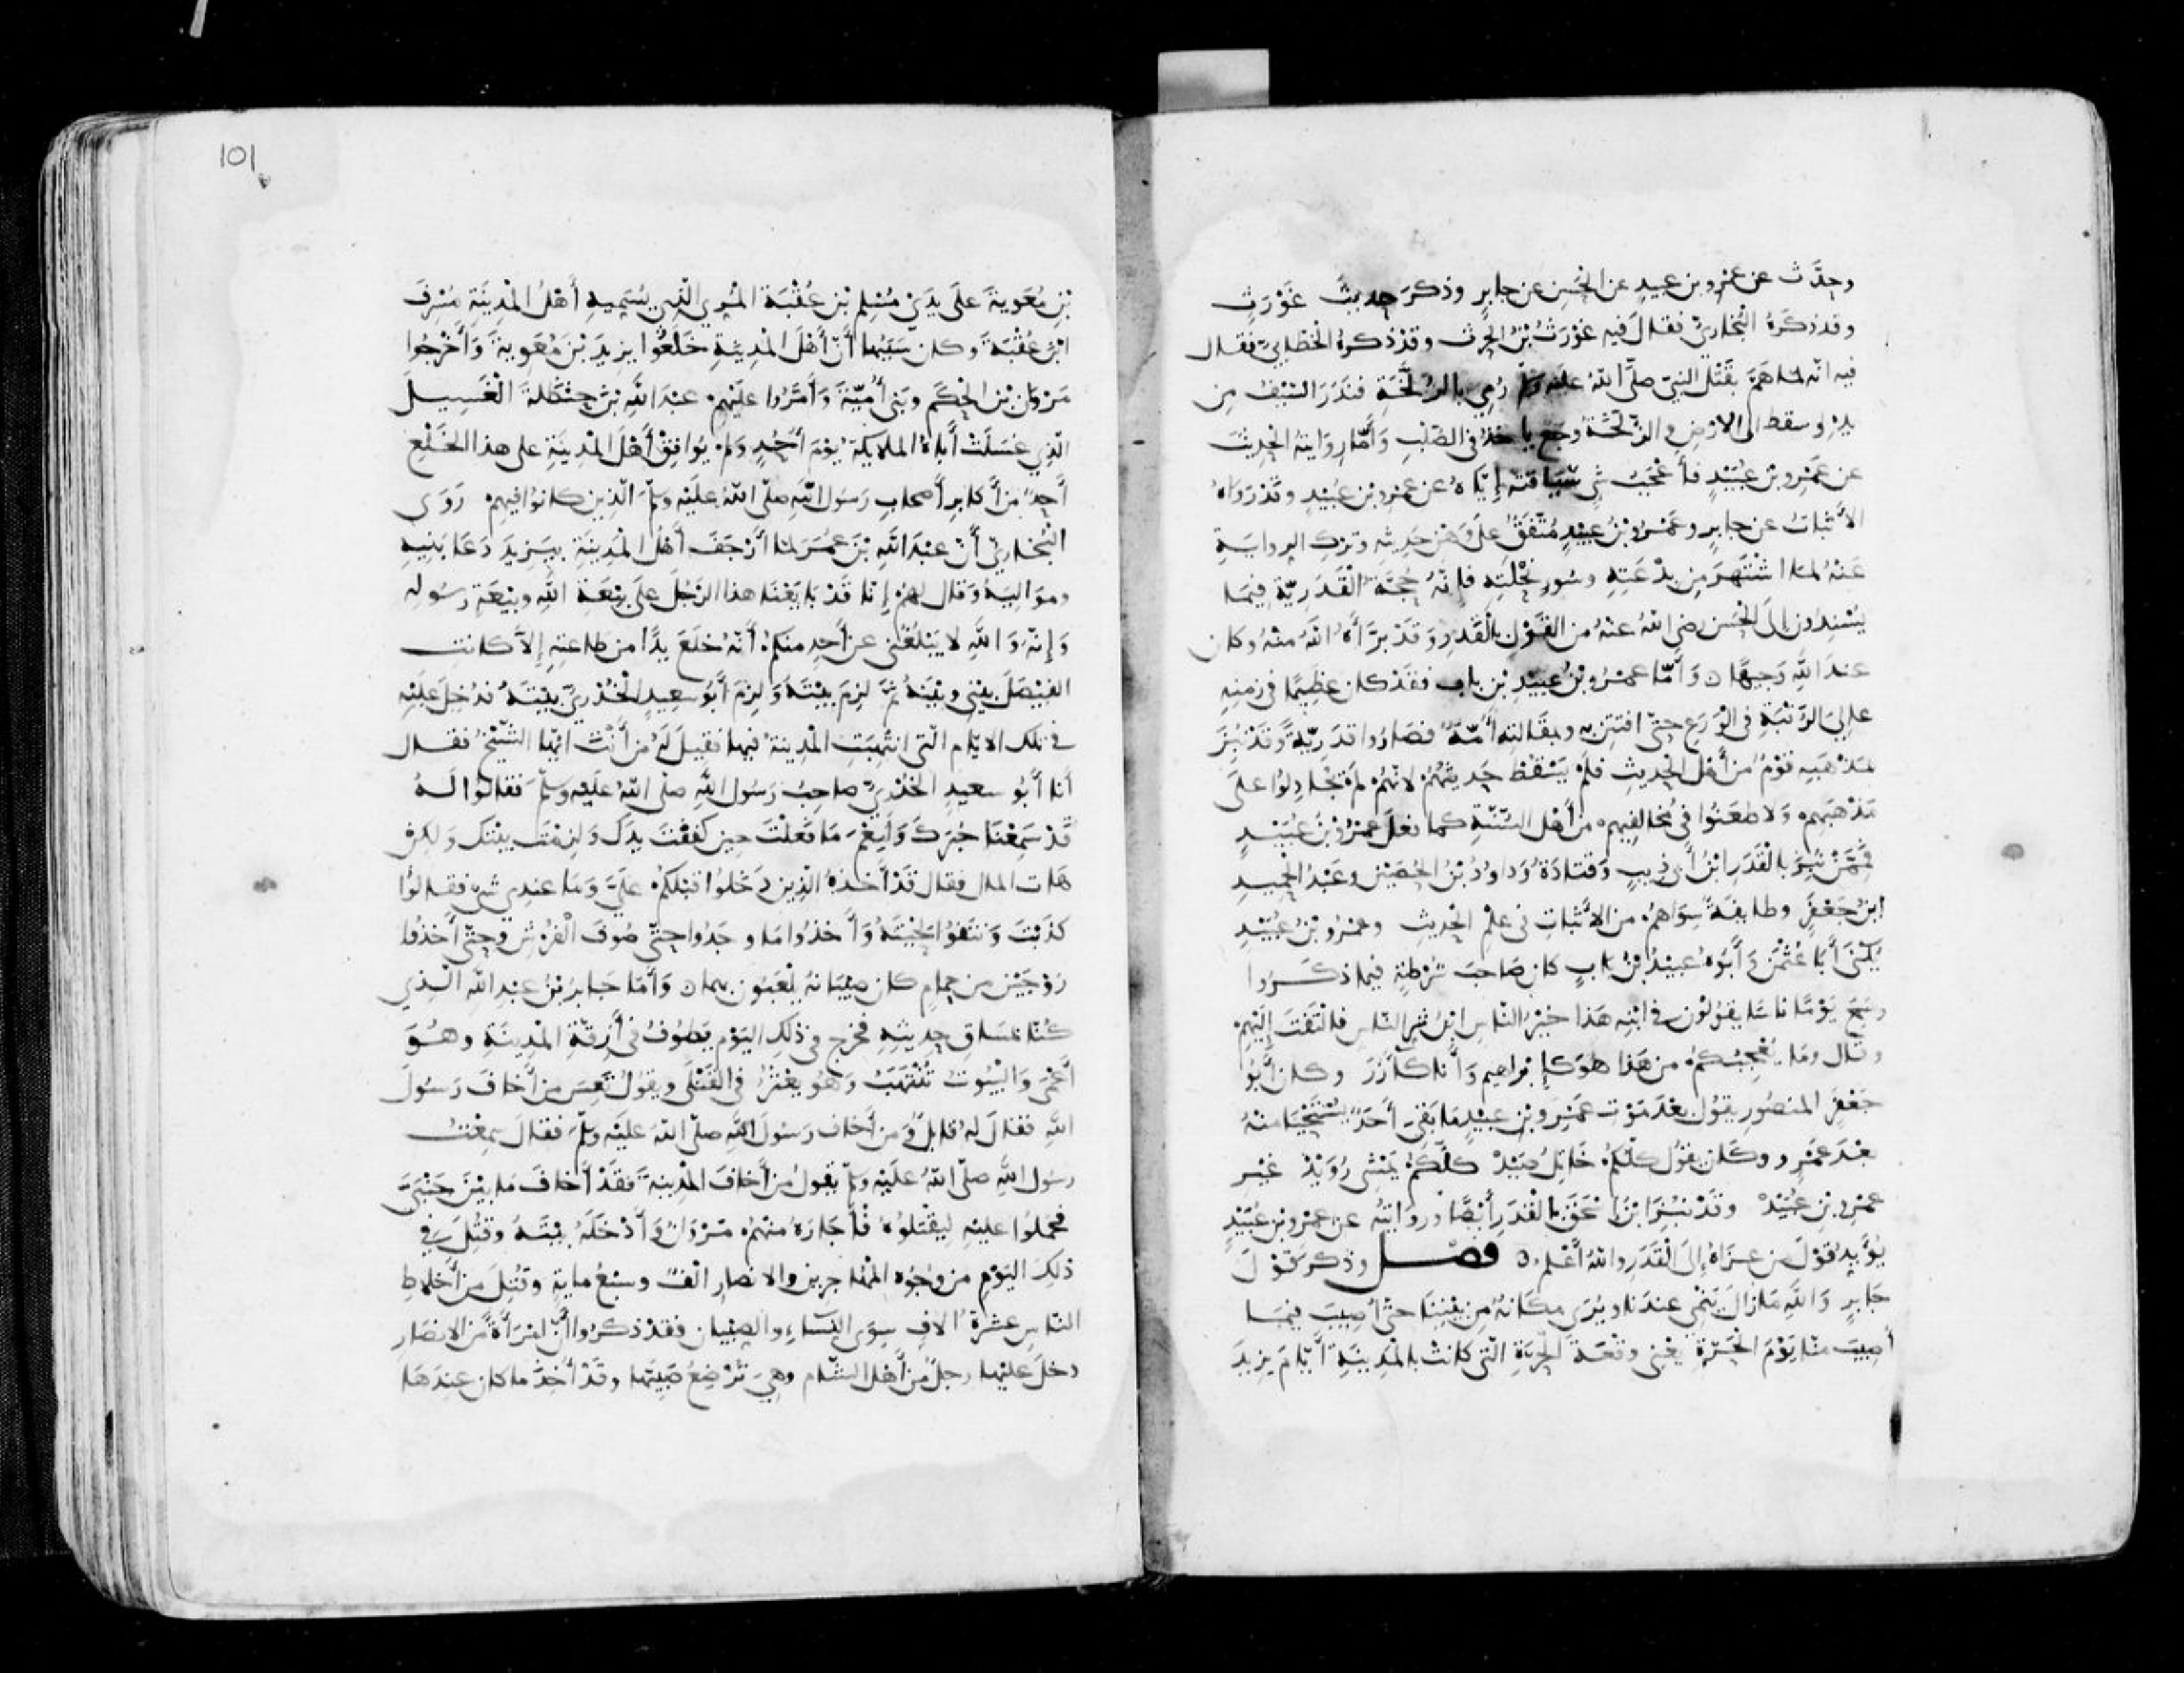 وحدَّث عن عمرو بن عبيد عن الحسن عن جابر وذكر حديث غَوْرَثٍ
وقد ذكرَهُ البُخاريّ فقالَ فيه غَوْرَثُ بْنُ الحرث وقدْ ذكرهُ الخطّابيّ فقال
فيه انّه لما همَّ بقَتْل النبيّ صلَّى اللهُ علَيه وسلم رُمِيَ بالزُّلَّخَةِ فنَدَرَ السَّيْفُ مِن
يدِهِ وسقط الى الارْضِ والزُّلَّخَةُ وجَعٌ ياخذُ في الصُّلْبِ وَأمّا رِوَايتهُ الحديثَ
عن عَمْرِو بْن عُبَيْدٍ فأَعْجَبُ شيءٍ سِيَاقتهُ إيّاهُ عن عمرو بن عُبَيْدٍ وقَدْ رَوَاهُ
الأثباتُ عن جابرٍ وعَمْرُو بْنُ عبيْدٍ مُتَّفَقٌ علَى وَهْنِ حَدِيثِهِ وترْكِ الروايَةِ
عَنْهُ لما اشْتَهَرَ مِن بدْعَتِهِ وسُوءِ نِحْلَتِهِ فإنّهُ حُجَّةُ القَدَرِيّة فِيمَا
يُسْنِدُون إلى الحَسَن رضي اللهُ عنْهُ من القَوْلِ بالْقَدَرِ وَقدْ برَّأهُ اللهُ منْهُ وكان
عندَ اللهِ وَجِيهًا ۝ وَأمّا عمْرُو بْنُ عُبَيْدِ بْنِ بابٍ فقَدْ كان عظيمًا في زمنِهِ
عاليَ الرُّتْبَةِ في الْوَرَعِ حتّى افتتِن به وبمقَالته أُمّةٌ فصَارُوا قدَرِيّةً وَقَدْ نُبِزَ
بمَذْهبِهِ قوْمٌ مِنْ أَهْلِ الحديثِ فلَمْ يَسْقُطْ حَديثُهُمْ لانّهُمْ لمْ يُجَادِلُوا علَى
مَذْهَبِهِمْ وَلا طعَنُوا في مُخَالِفِيهِمْ منْ أهْل السّنّةِ كما فعلَ عمْرُو بْنُ عُبَيْدٍ
فمِمَّنْ نُبِزَ بالْقَدَرِ ابْنُ أبي ذيبٍ وَقتادَةُ وَدَاودُ بْنُ الحُصَيْنِ وعَبْدُ الحمِيدِ
ابنُ جَعْفَرٍ وطايفةٌ سِوَاهُمْ من الأثباتِ في عِلْمِ الحديثِ وعمْرُو بْنُ عُبَيْدٍ
يُكْنَى أبَا عُثْمٰنَ وَأَبُوهُ عبيْدُ بْنُ بَابٍ كان صَاحبَ شُرْطةٍ فيما ذكَرُوا
وسَمِعَ يَوْمًا ناسًا يقُولُون في ابْنِهِ هَذَا خَيْرُ النّاسِ ابْنُ شرّ النّاسِ فالْتَفَتَ إلَيْهِمْ
وقال ومَا يُعْجِبُكُمْ من هَذَا هوَ كَإبْراهيم وَأنا كآزَرَ وكان أبُو
جَعْفَرٍ المنصُورِ يقُول بعْدَ مَوْتِ عَمْرِو بْنِ عبيْدٍ مَا بَقِيَ أَحَدٌ يُسْتَحْيَا منْهُ
بعْدَ عَمْرٍو وكَان يقُول كلّكُمْ خَاتِلُ صَيْدْ كلّكُمْ يَمْشِي رُوَيْدْ غيْرَ
عمْرِو بْنِ عُبَيْدْ وقدْ نُبِزَ ابْنُ إسْحٰقَ بالقَدَرِ أيْضًا وروَايتهُ عن عمْرو بن عُبَيْدٍ
يُؤَيِّدُ قوْلَ من عزَاهُ إلى الْقدَرِ واللهُ أعْلم ۝ فصْل وذكرَ قوْلَ
جَابرٍ وَاللهِ مَا زالَ يَنْمي عندَنا ويُرَى مكَانهُ مِن بيْتِنَا حتّى أُصِيبَ فِيمَا
أُصِيبَ منّا يَوْمَ الحَرّةِ يعْني وقْعَةَ الحرّةِ الّتي كانتْ بالمدينَةِ أيّامَ يزيدَ
بْنِ مُعٰوِيةَ علَى يدَيْ مُسْلم بْن عُقْبَة المُرّي الّذي يُسَمّيهِ أهْلُ المدِينَةِ مُسْرِفَ
ابْنَ عُقْبَةَ وكان سَبَبُها أنّ أهْلَ المدِينةِ خَلَعُوا يزيدَ بْنَ مُعٰوِيةَ وَأخْرَجُوا
مَرْوانَ بْن الحكَمِ وبَنِي أُمَيّةَ وَأمَّرُوا علَيْهِمْ عبْدَ اللهِ بْنَ حنْظَلةَ الْغَسِيلَ
الّذي غسَلَتْ أباهُ الملايكةُ يوْمَ أُحُدٍ وَلمْ يُوافِقْ أهْلَ المدِينَةِ على هذا الخَلْعِ
أحدٌ مِنْ أكَابرِ أصحابِ رَسُول اللهِ صلّى اللهُ علَيْه وسلّمَ الّذين كانُوا فيهِمْ رَوَى
البُخاريّ أنّ عبْدَ اللهِ بْنَ عمَرَ لما أرْجَفَ أهْلُ المدِينةِ بيَزيدَ دَعَا بَنِيهِ
ومَوَاليَهُ وَقال لهُمْ إنّا قدْ بَايَعْنَا هذا الرّجُلَ علَى بيْعَةِ اللهِ وبيْعَةِ رَسُوله
وَإنّه وَاللهِ لا يَبْلُغُنِي عن أحدٍ منكُمْ أنّهُ خلَعَ يدًا من طاعتِهِ إلّا كانت
الفَيْصَلَ بيْني وبيْنَهُ ثمّ لزِمَ بيْتَهُ وَلزِمَ أبُو سعِيدٍ الْخُدْريّ بيْتهُ فدُخِلَ علَيْهِ
في تلكَ الايّام الّتي انتُهِبَتِ المدِينةُ فيها فقيلَ لهُ مَنْ أنْتَ ايّها الشّيْخُ فقالَ
أنا أَبُو سعيدٍ الخُدْريّ صاحِبُ رَسُول اللهِ صلّى اللهُ علَيْهِ وسلّمَ فقالُوا لَهُ
قَدْ سَمِعْنَا خبَرَكَ وَلَنِعْمَ مَا فعَلْتَ حِين كفَفْتَ يدَكَ وَلزِمْتَ بيْتكَ وَلكِنْ
هَات المال فقال قَدْ أخذَهُ الذين دَخَلُوا قبْلَكُمْ علَيَّ وَمَا عندي شيءٌ فقَالُوا
كذَبْتَ وَنتَفُوا لحْيَتَهُ وَأخذُوا مَا وجَدُوا حتّى صُوفَ الْفُرُشِ وحتّى أخذُوا
زوْجَيْن من حمامٍ كان صِبْيَانهُ يلْعَبُون بهما ۝ وَأمّا جَابرُ بْنُ عبدِ الله الّذي
كُنّا بمَسَاقِ حدِيثِهِ فخرج في ذلِكَ اليَوْم يَطُوفُ في أزِقّةِ المدِينَةِ وهُوَ
أعْمَى وَالبُيُوتُ تُنْتَهَبُ وَهُو يعْثرُ في القَتْلَى ويقُولُ تَعِسَ مَنْ أخافَ رَسُولَ
اللهِ فقالَ لهُ قايلٌ وَمَن أخاف رَسُولَ اللهِ صلّى اللهُ علَيْه وسلّمَ فقالَ سمِعْتُ
رسُولَ اللهِ صلّى اللهُ علَيْه وسلّم يقُول مَنْ أخافَ المدِينةَ فقدْ أخافَ مَا بيْنَ جَنْبَيَّ
فحَملُوا علَيْهِ ليقْتلُوهُ فأجَارهُ منْهُمْ مَرْوَانُ وَأدْخَلَهُ بيْتَهُ وقُتِلَ في
ذلِكَ اليَوْم من وجُوه المُهَاجرين والانصار الْفٌ وسَبْعُ مايةٍ وقُتِلَ من أخلاطِ
النّاسِ عشَرَةُ الافٍ سِوَى النّسَاءِ والصِّبْيان فقدْ ذكرُوا أنّ امْرَأةً مِن الانصَار
دخلَ علَيْها رجلٌ مِنْ أهْل الشّام وهيَ تُرْضِعُ صَبِيّها وقدْ أُخِذَ ما كان عنْدَهَا
101